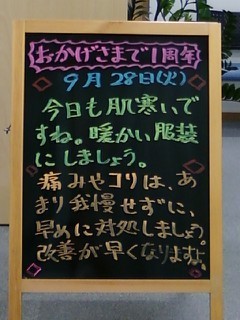 おかげさまで1周年
9月28日(火)
今日も肌寒いで
すね。暖かい服装
にしましょう。
痛みやコリは、あ
まり我慢せずに、
早めに対処しましょう。
改善が早くなりますよ。